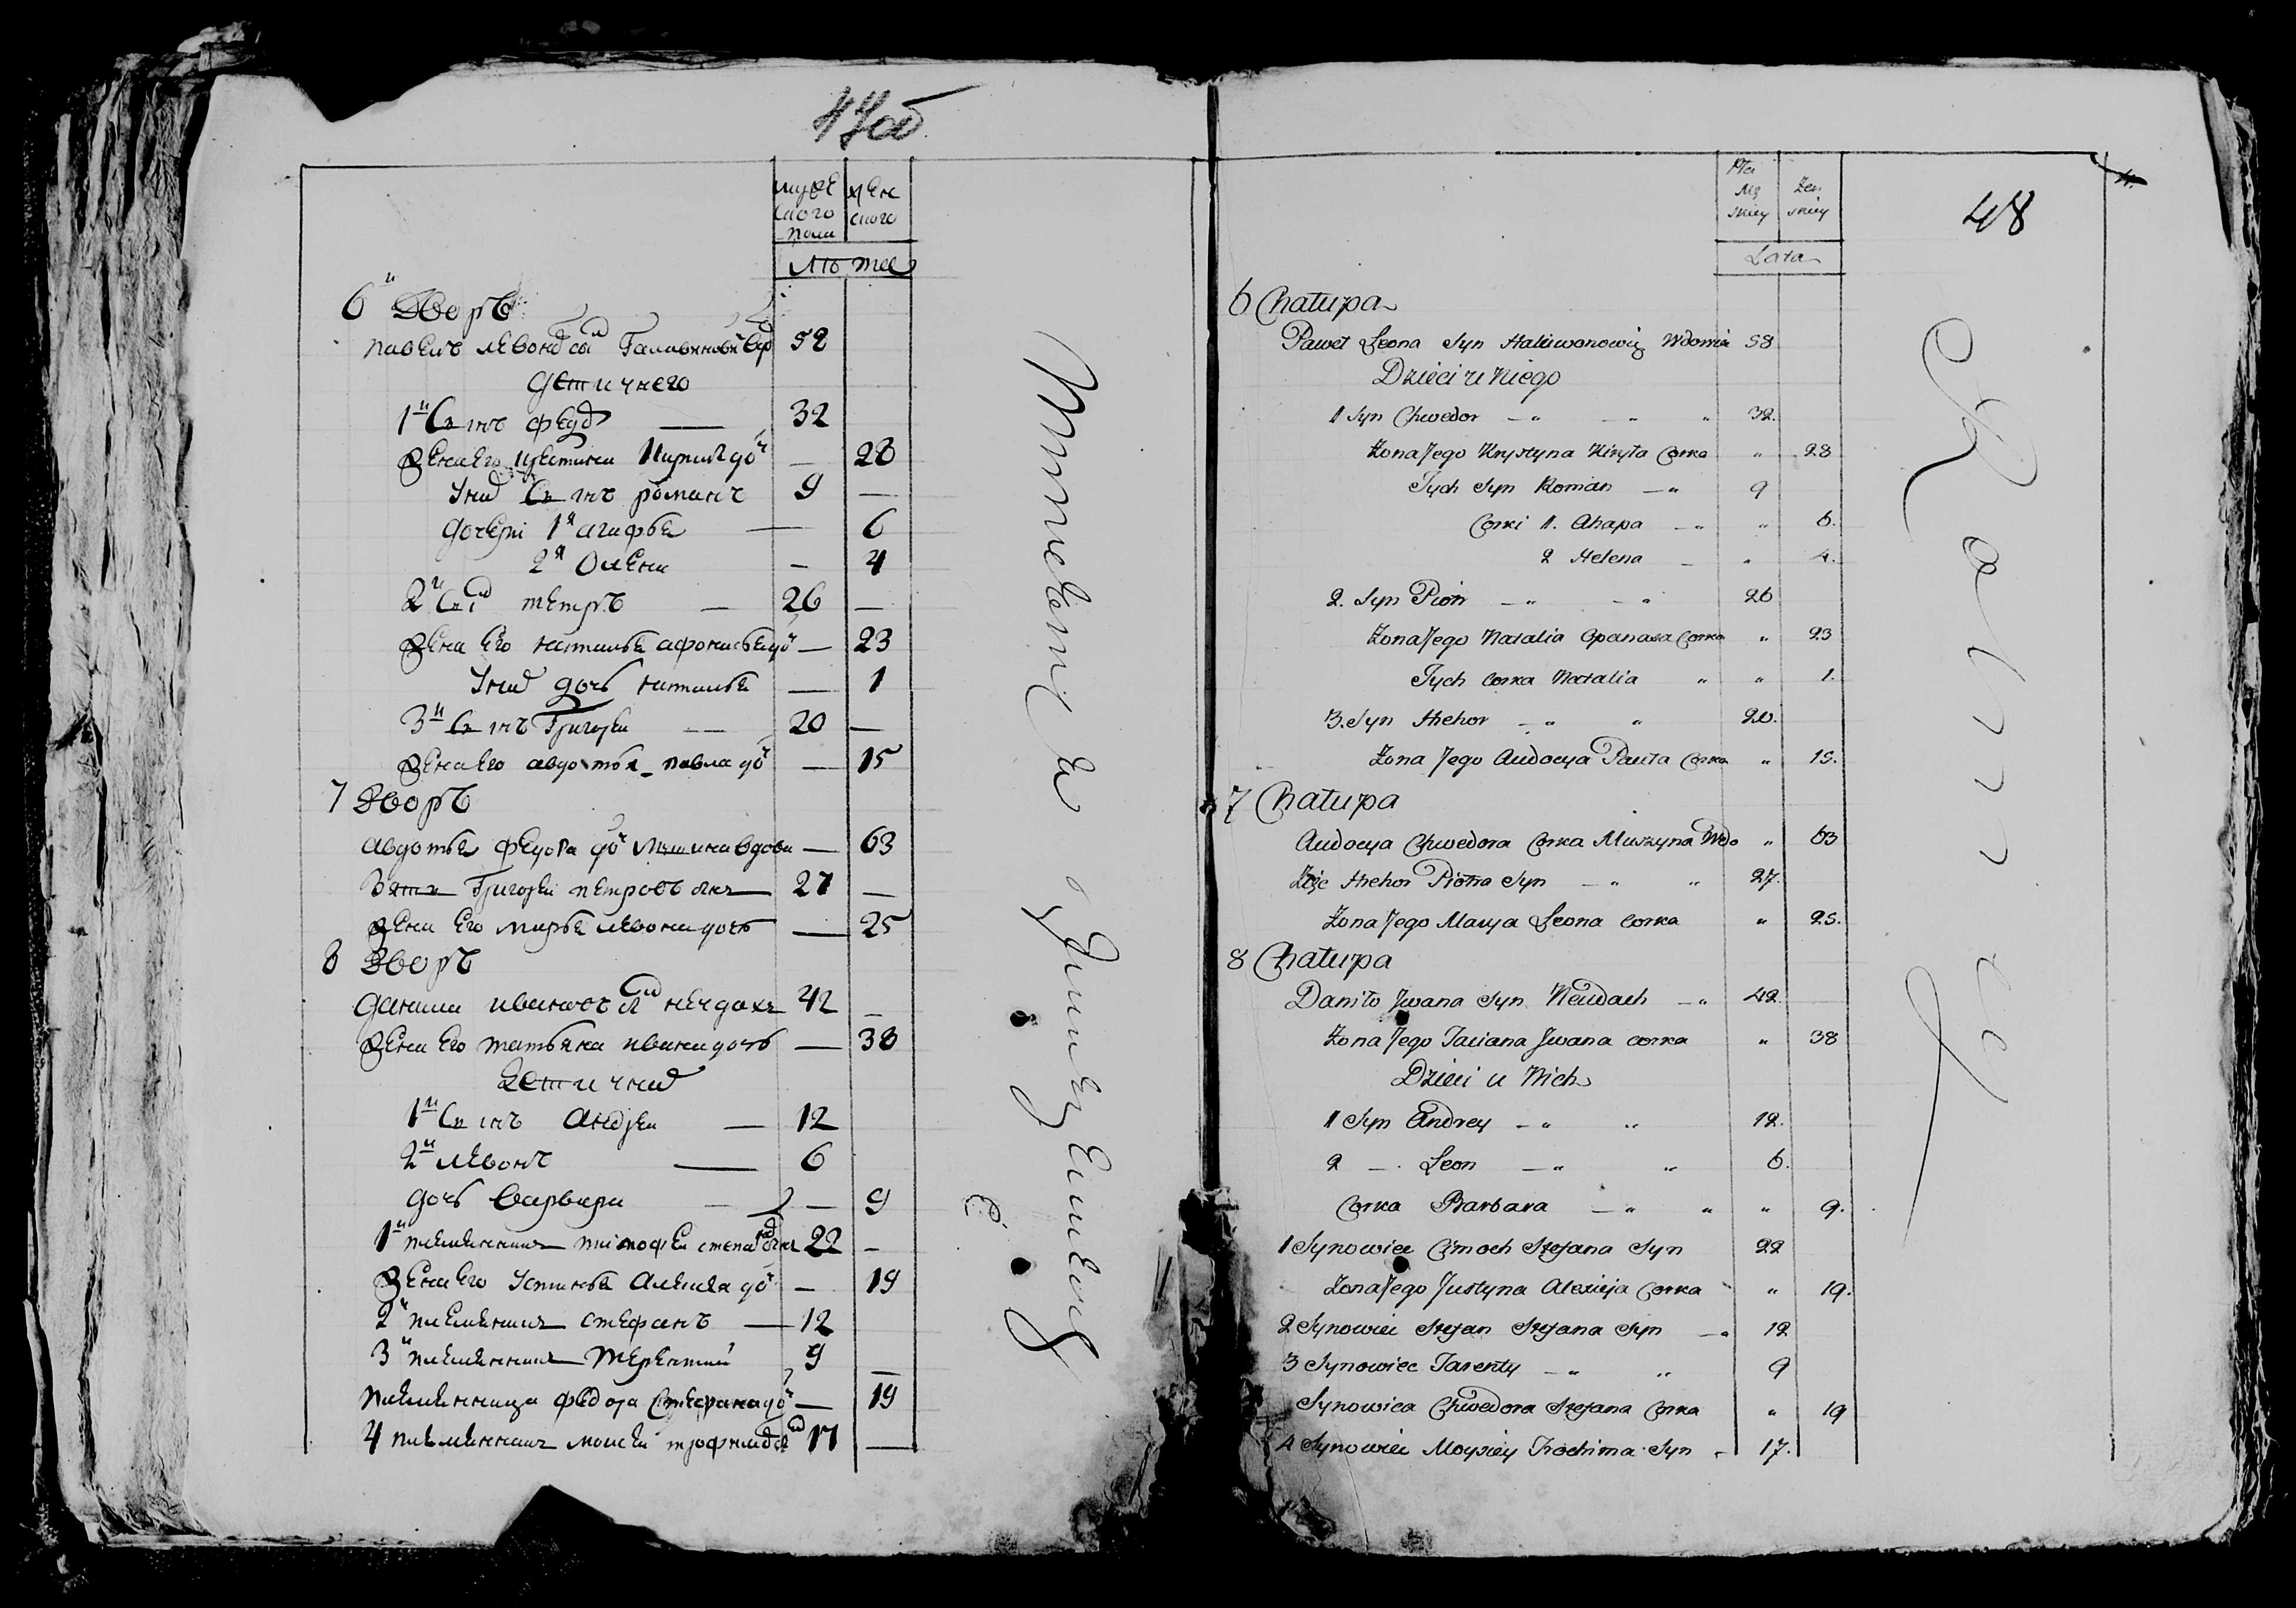 47об.
муже
ского
пола
жен
ского
Лѣта
6й Дворъ
52
Дети у него
1й Синъ Федо 32
Жена его Кристина Кирила до 28
У них Синъ Романъ 9 —
дочери 1я Агафья — 6
2я Олена — 4
2й Синъ Петръ — 26 —
Жена его Наталья Афонасья до — 23
У них дочь Наталья — 1
3й Синъ Григорей — 20 —
Жена его Авдотья Павла до — 15
7 Дворъ
Авдотья Федора до вдова — 63
Зять Григорей Петровъ 27 —
Жена его Марья Левона дочь — 25
8 Дворъ
Данила Ивановъ Неждахъ 42 —
Жена его Татьяна Ивана дочь — 38
Дети у них
1й Синъ Андрей — 12
2й Левонъ — 6
дочь Варвара — 9
1й племенникъ Тимофей 22 —
Жена его Устинья Алексея до — 19
2й племенникъ Стефанъ — 12
3й племенникъ Терентий 9 —
племенница Федора Стефана до — 19
4 племенникъ Моисей 17 —
48
Płci
Mę
skiey
Żen
skiey
Lata
6 Chałupa
Paweł Leona Syn Haliwonowicz Wdowiec 58
Dzieci u Niego
1 Syn Chwedor — " — " 32.
Żona Jego Krystyna Kiryła Corka " 28
Tych Syn Roman — " 9
Corki 1. Ahapa — " " 6.
2 Helena — " 4.
2. Syn Piotr — " — " 26
Żona Jego Natalia Opanasa Corka " 23
Tych Corka Natalia " " 1.
3. Syn Hrehor — " " 20.
Żona Jego Audocya Pauła Corka " 15.
7 Chałupa
Audocya Chwedora Corka Muszyna Wdo " 63
Zięć Hrehor Piotra Syn — " " 27.
Żona Jego Marya Leona Corka " 25.
8 Chałupa
Daniło Jwana Syn Neudach — " 42.
Żona Jego Taciana Jwana corka " 38
Dzieci u Nich
1 Syn Andrey — " " 12.
2 — Leon — " " 6.
Corka Barbara — " " " 9.
1 Synowiec Cimoch Stefana Syn 22
Żona Jego Justyna Alexieja Corka " 19.
2 Synowiec Stefan Stefana Syn — " 12
3 Synowiec Tarenty — " " 9
Synowica Chwedora Stefana Corka " 19
4 Synowiec Moysiey Trochima Syn — 17.